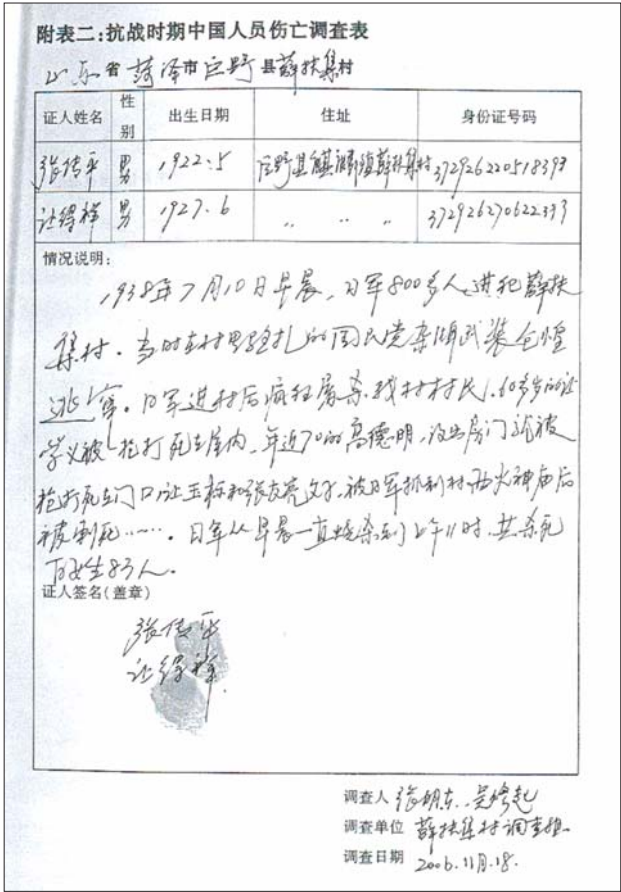 附表二:抗战时期中国人员伤亡调查表
山东省菏泽市巨野县薛扶集村
证人姓名 性别 出生日期 住址 身份证号码
张传平 男 1922.5 巨野县麒麟镇薛扶集村
让得祥 男 1927.6 〃 〃 〃
情况说明:
1938年7月10日早晨,日军800多人进犯薛扶
集村.当时在村里驻扎的国民党杂牌武装仓惶
逃窜。日军进村后疯狂屠杀我村村民,60多岁的让
学义被枪打死在屋内,年近70的高德明,没出房门就被
枪打死在门口,让玉标和张友亮父子,被日军抓到村西火神庙后
被刺死……。日军从早晨一直烧杀到上午11时,共杀死
百姓83人.
证人签名(盖章)
张传平
让得祥
调查人 张明东、吴修起
调查单位 薛扶集村调查组
调查日期 2006.11月.18.